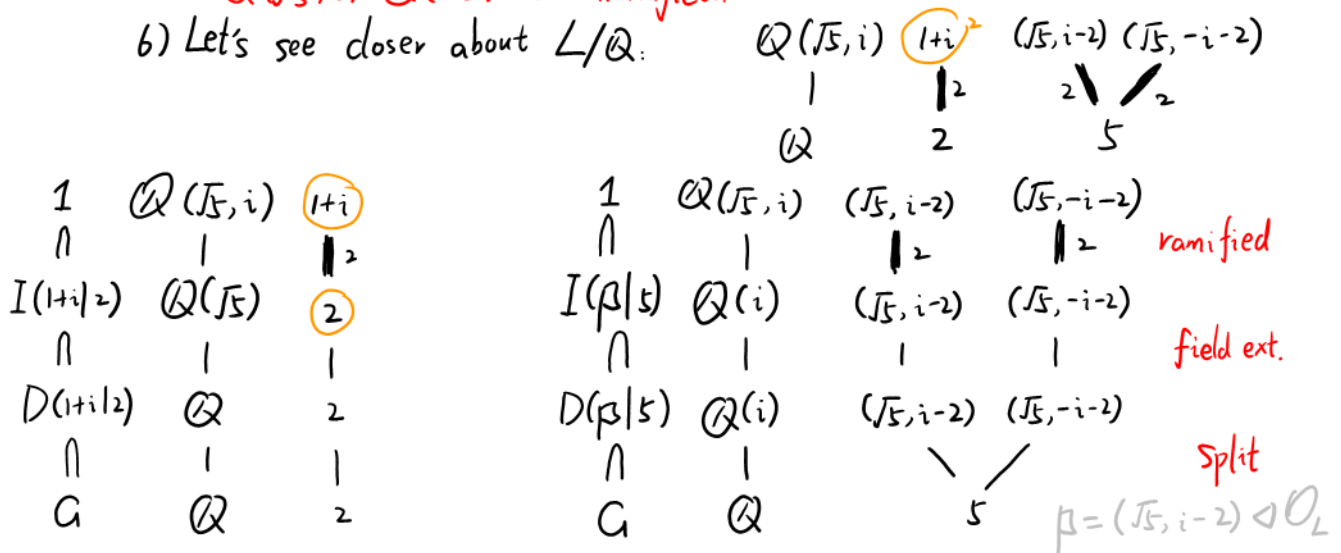 6) Let's see closer about L/Q:
Q(√5, i) (1+i)² (√5, i-2) (√5, -i-2)
| 2 2 2
Q 2 5
1 Q(√5, i) 1+i
∩ | 2
I(1+i|2) Q(√5) 2
∩ | |
D(1+i|2) Q 2
∩ | |
G Q 2
1 Q(√5, i) (√5, i-2) (√5, -i-2)
∩ | 2 2 ramified
I(β|5) Q(i) (√5, i-2) (√5, -i-2)
∩ | | | field ext.
D(β|5) Q(i) (√5, i-2) (√5, -i-2)
∩ | \ / split
G Q 5
β = (√5, i-2) ◁ O_L